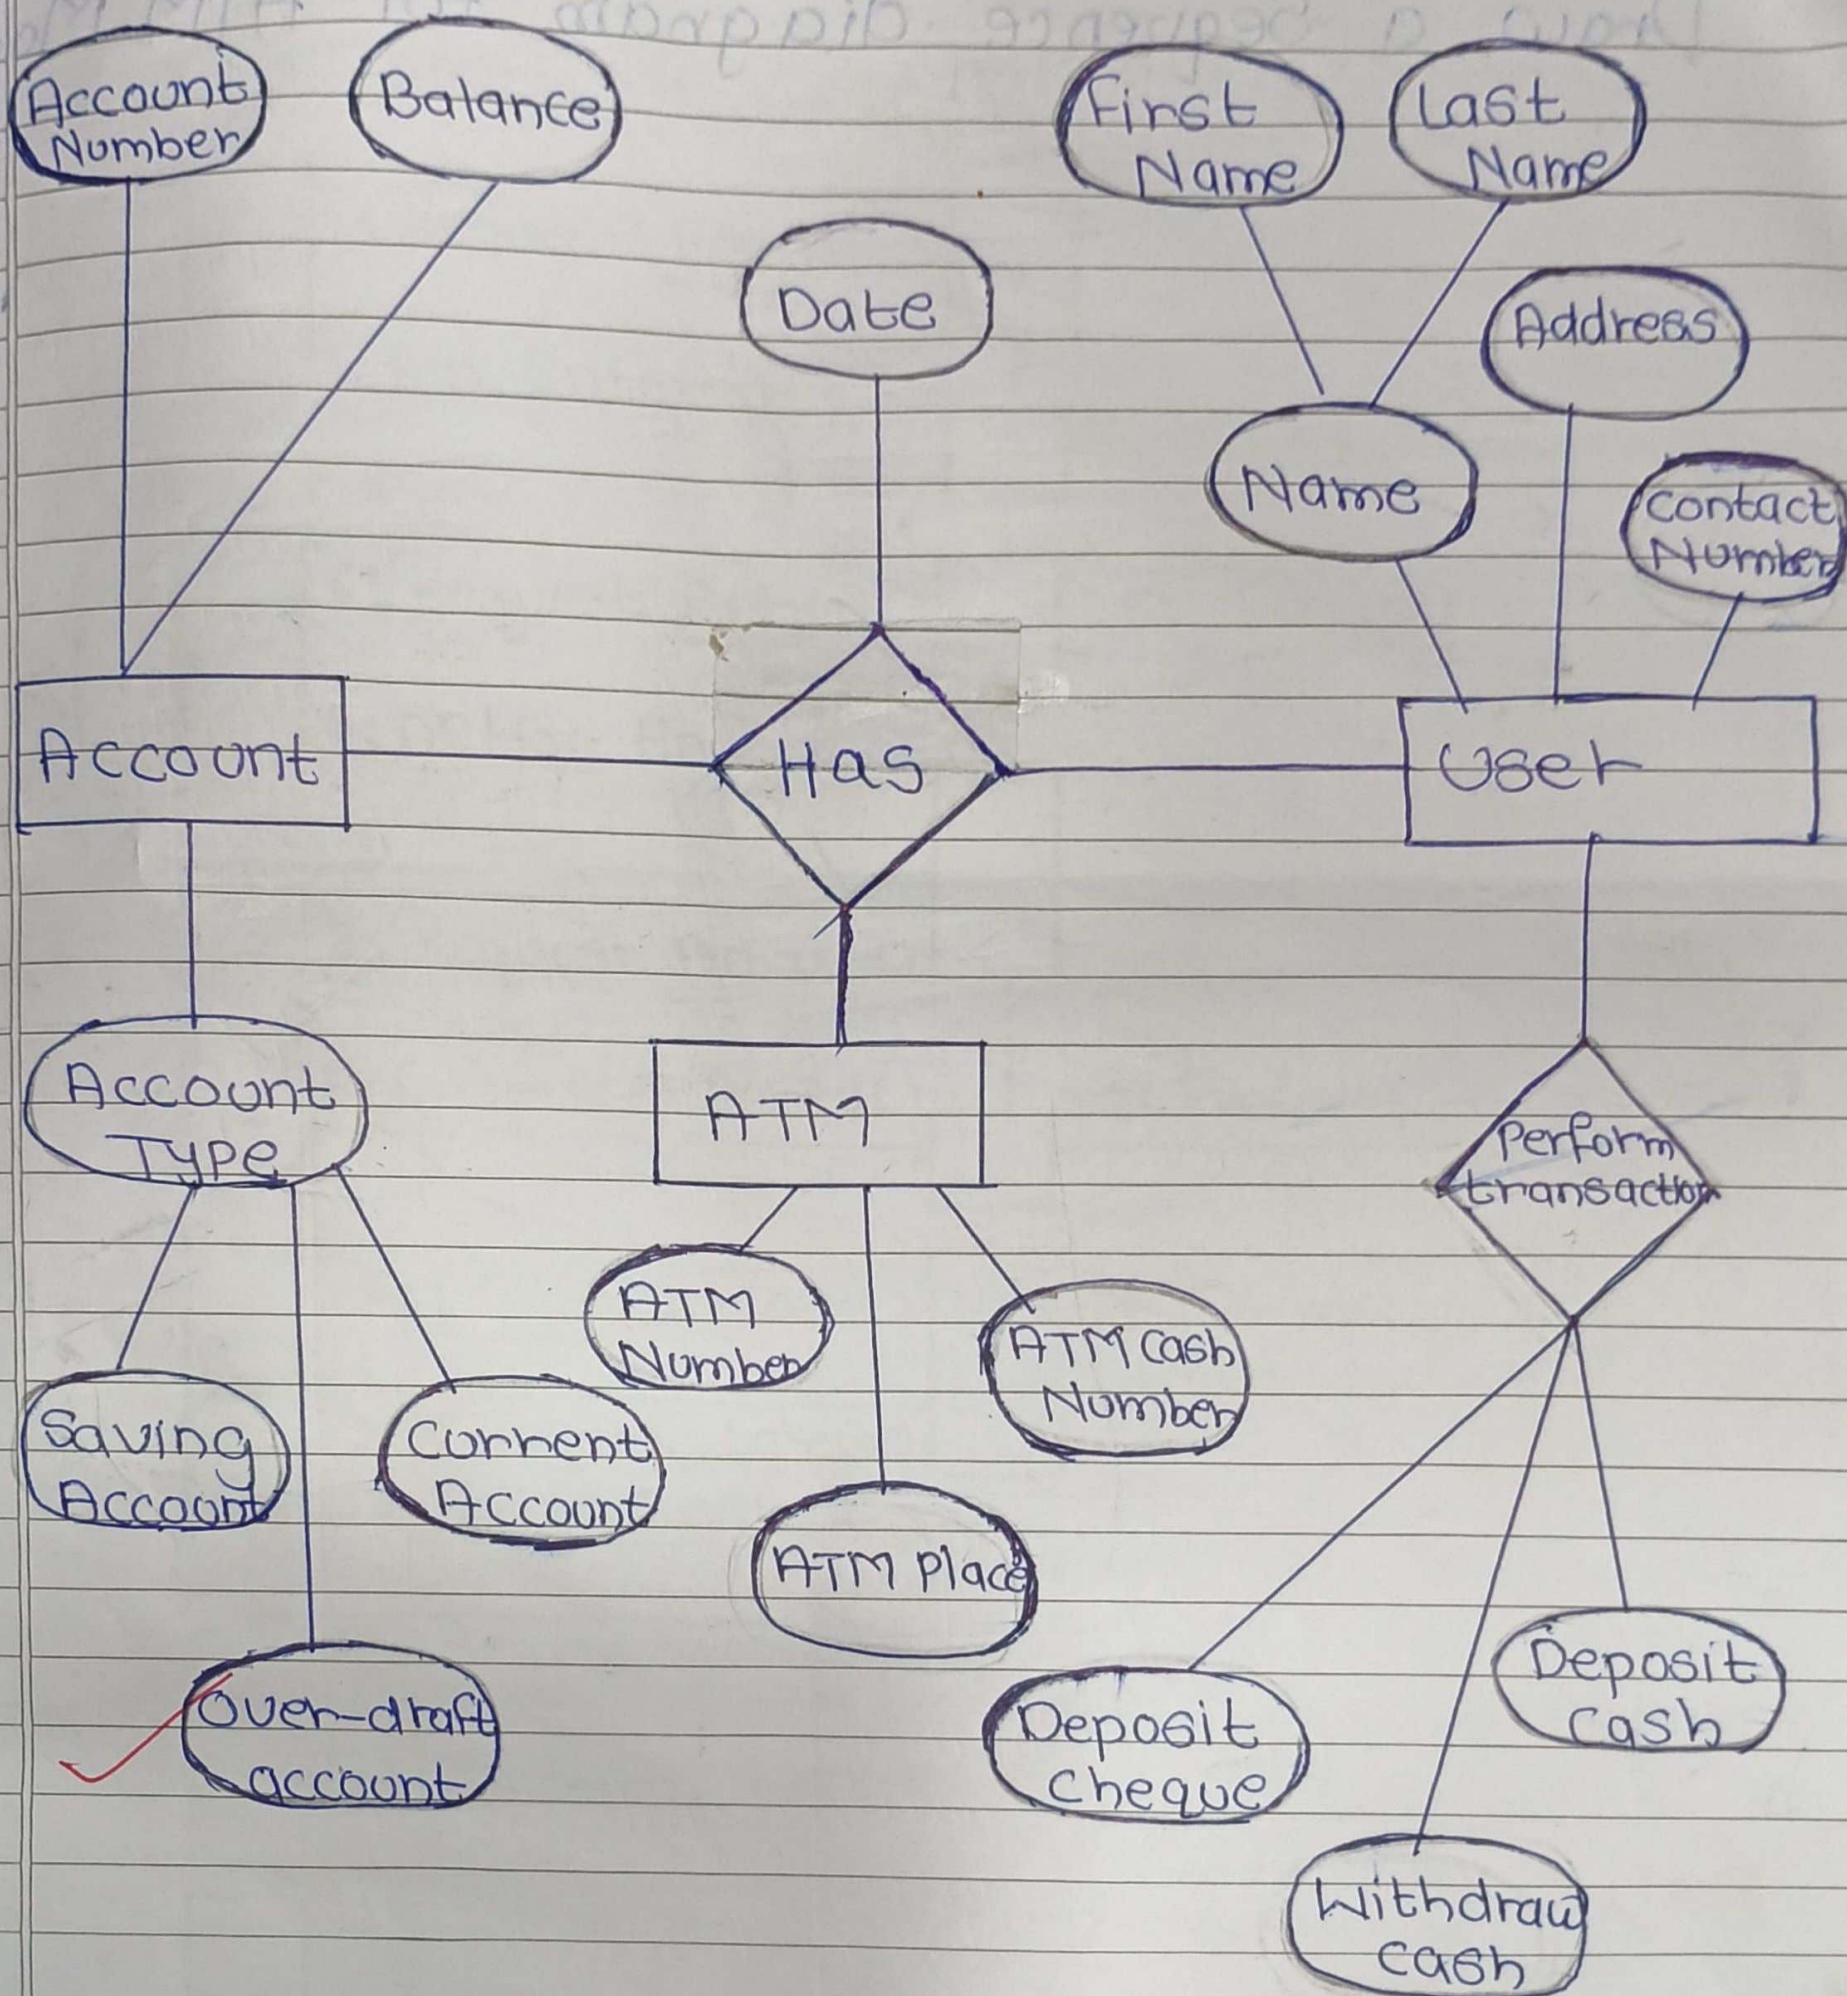 Draw a sequence diagram for ATM
Account
Number
Balance
First
Name
Last
Name
Date
Address
Name
Contact
Number
Account
Has
User
Account
Type
ATM
Perform
transaction
ATM
Number
ATM Cash
Number
Saving
Account
Current
Account
ATM Place
Over-draft
account
Deposit
Cheque
Deposit
Cash
Withdraw
Cash